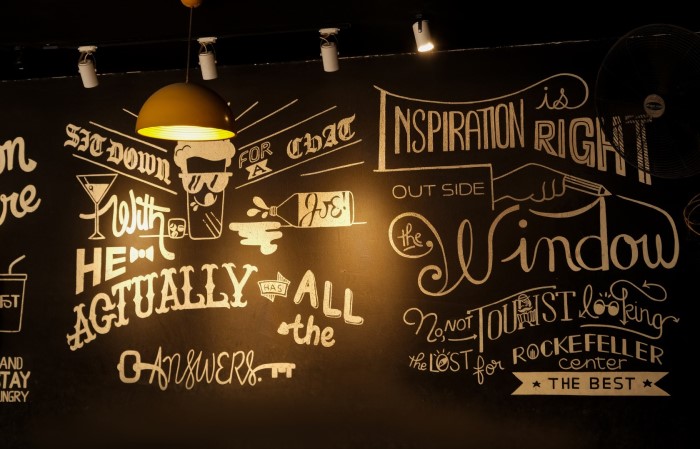 on
re
AND
TAY
NGRY
SIT DOWN FOR A CHAT
With Joe!
HE
ACTUALLY HAS ALL
the
ANSWERS.
INSPIRATION is RIGHT
OUT SIDE
the Window
No, NOT TOURIST looking
the LOST for ROCKEFELLER
center
THE BEST